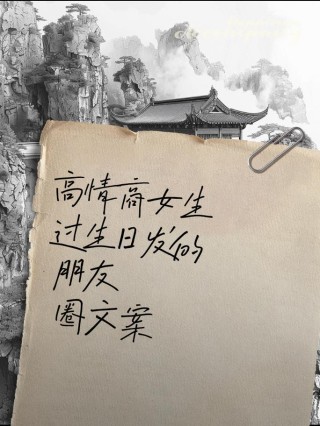 高情商女生
过生日发的
朋友
圈文案